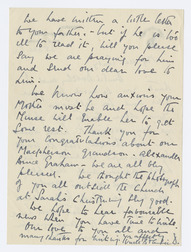 We have written a little letter
to your father, - but if he is too
ill to read it, will you please
say we are praying for him
and send our dear love to
him.
We know how anxious your
Mother must be and hope the
Nurse will enable her to get
some rest. Thank you for
your congratulations about our
Macpherson Grandson - Alexander
Bruce Graham - we are all so
pleased. We thought the photograph
of you all outside the Church
at Sarah's Christening very good.
We hope to hear favourable
news when you have time to write
Our love to you all and
many thanks for writing